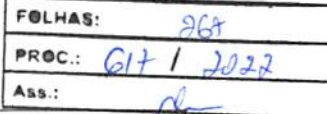 FOLHAS: 267
PROC.: 617 / 2022
Ass.: